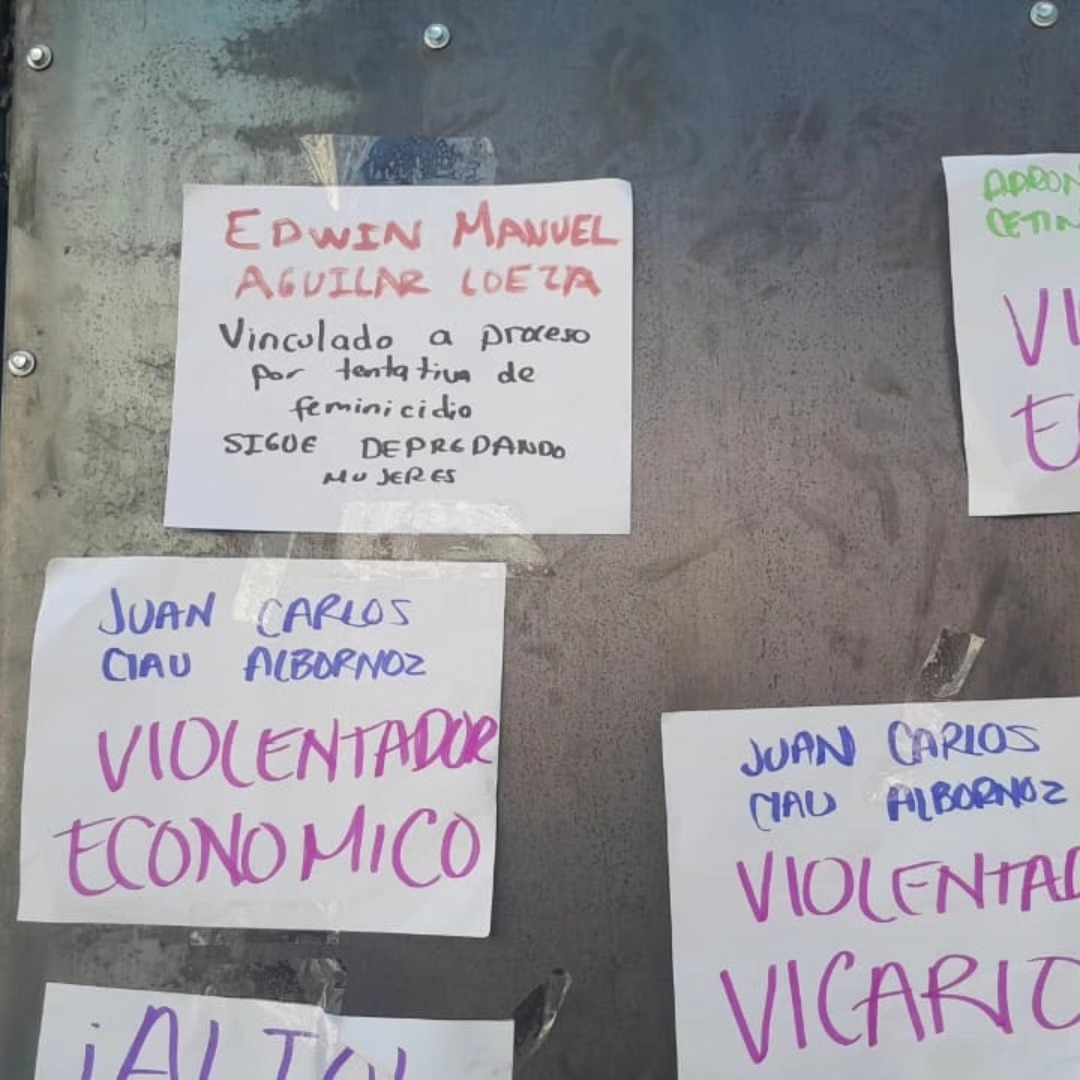 EDWIN MANUEL
AGUILAR LOEZA
Vinculado a proceso
por tentativa de
feminicidio
SIGUE DEPREDANDO
MUJERES
JUAN CARLOS
CIAU ALBORNOZ
VIOLENTADOR
ECONOMICO
¡ALTO!
JUAN CARLOS
CIAU ALBORNOZ
VIOLENTAD
VICARIO
VI